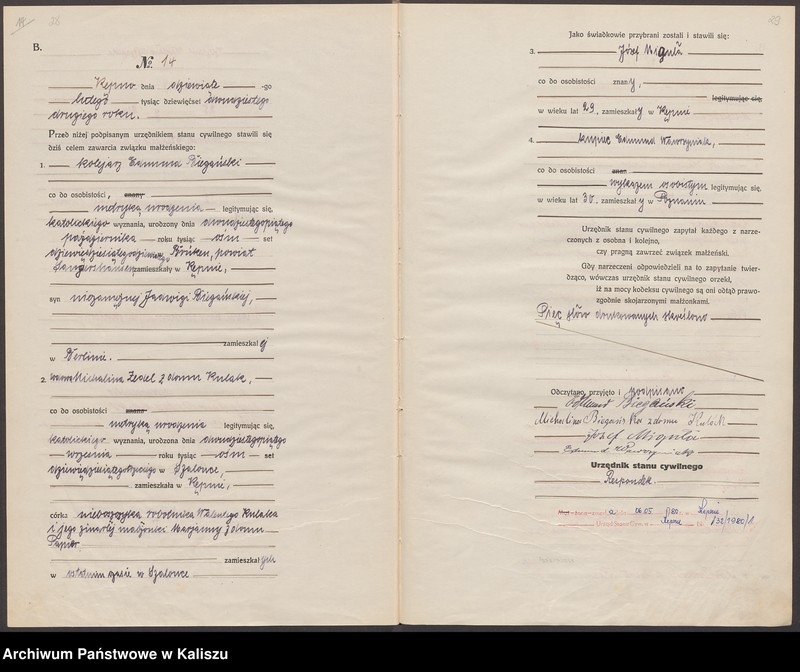 B.
№. 14
Kępno dnia dziewiątego
lutego tysiąc dziewięćset dwudziestego
drugiego roku.
Przed niżej podpisanym urzędnikiem stanu cywilnego stawili się
dziś celem zawarcia związku małżeńskiego:
1. kolejarz Edmund Biegański
co do osobistości, znany
metryką urodzenia legitymując się,
katolickiego wyznania, urodzony dnia dwudziestegopiątego
października roku tysiąc osm set
Brücken, powiat
Sangerhausen zamieszkały w Kępnie,
syn niezamężnej Jadwigi Biegańskiej,
zamieszkałej
w Berlinie.
2. Michalina z domu Kulak,
co do osobistości znana
metryką urodzenia legitymując się,
katolickiego wyznania, urodzona dnia dwudziestegopiątego
września roku tysiąc osm set
w Szalonce,
zamieszkała w Kępnie,
córka robotnika Walentego Kulaka
i jego zmarłej małżonki Marjanny z domu
zamieszkałych
w ostatnim czasie w Szalonce
29
Jako świadkowie przybrani zostali i stawili się:
3. Józef Migula
co do osobistości znany,
legitymując się,
w wieku lat 29, zamieszkały w Kępnie
4. kupiec Edmund Wawrzyniak,
co do osobistości znan
wykazem osobistym legitymując się,
w wieku lat 30, zamieszkały w Poznaniu
Urzędnik stanu cywilnego zapytał każdego z narze-
czonych z osobna i kolejno,
czy pragną zawrzeć związek małżeński.
Gdy narzeczeni odpowiedzieli na to zapytanie twier-
dząco, wówczas urzędnik stanu cywilnego orzekł,
iż na mocy kodeksu cywilnego są oni odtąd prawo-
zgodnie skojarzonymi małżonkami.
Pięć słów drukowanych skreślono
Odczytano, przyjęto i podpisano
Edmund Biegański
Michalina Biegańska z domu Kulak
Józef Migula
Edmund Wawrzyniak
Urzędnik stanu cywilnego
Respondek.
06.05 Kępnie
Kępnie
Archiwum Państwowe w Kaliszu